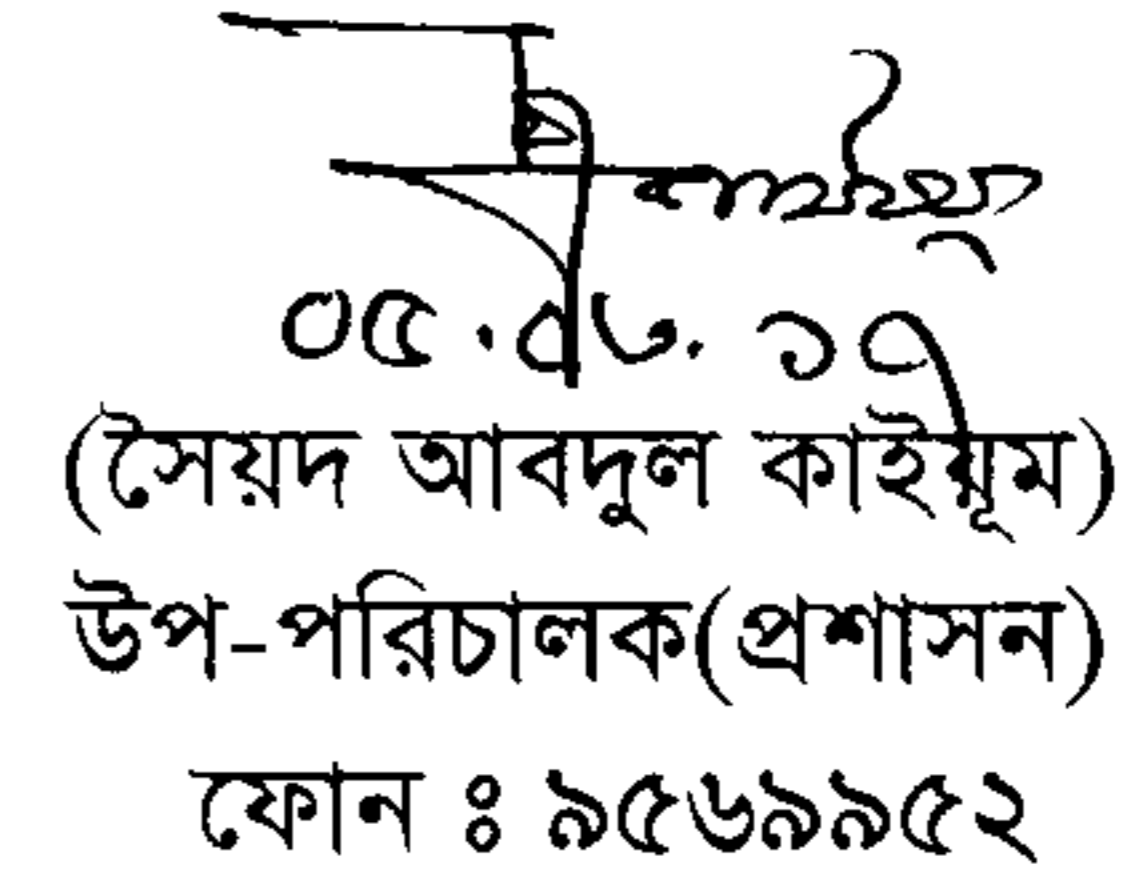 ০৫.০৬.১৭
(সৈয়দ আবদুল কাইয়ূম)
উপ-পরিচালক(প্রশাসন)
ফোন ঃ ৯৫৬৯৯৫২